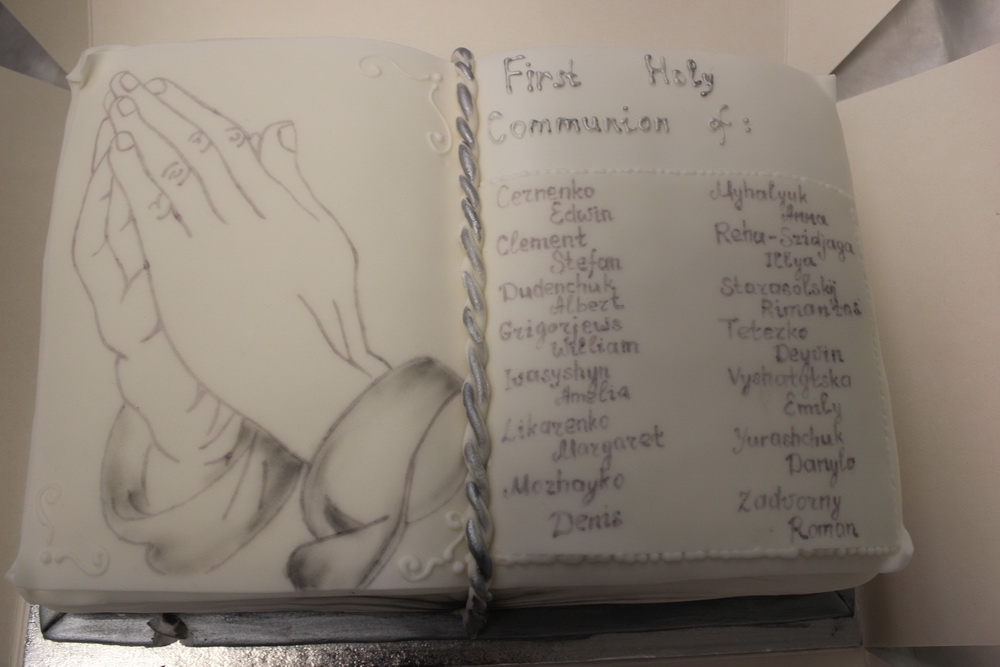 First Holy
Communion of:
Cernenko
Edwin
Clement
Stefan
Dudenchuk
Albert
Grigorjews
William
Iwasyshyn
Amelia
Likarenko
Margaret
Mozhayko
Denis
Myhalyuk
Anna
Reha-Szidjaga
Illya
Starosolskij
Rimantas
Teterko
Deyvin
Vyshatytska
Emily
Yurashchuk
Danylo
Zadvorny
Roman